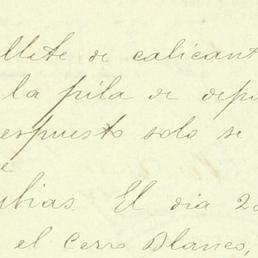 de calicant
la pila de depu
espuesto solo se
e
ubias. El dia 2
el Cerro Blanco,